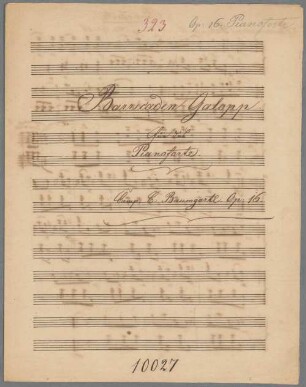 323
Op. 16. Pianoforte
Barricaden-Galopp
für das
Pianoforte.
Comp. C. Baumgartl. Op. 16.
10027